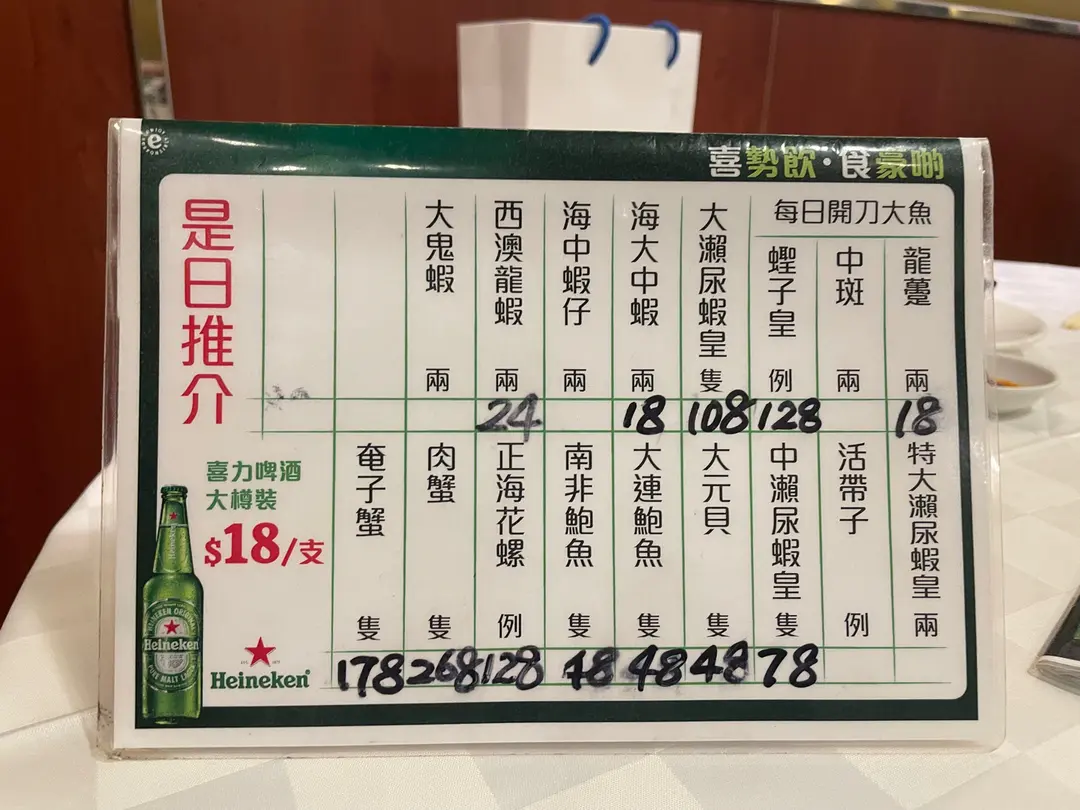 喜勢飲·食豪啲
是日推介
每日開刀大魚
龍躉 兩 18
中斑 兩
蟶子皇 例 128
大瀨尿蝦皇 隻 108
海大中蝦 兩 18
海中蝦仔 兩
西澳龍蝦 兩 24
大鬼蝦 兩
特大瀨尿蝦皇 兩
活帶子 例
中瀨尿蝦皇 隻 78
大元貝 隻 48
大連鮑魚 隻 48
南非鮑魚 隻 48
正海花螺 例 128
肉蟹 隻 268
奄子蟹 隻 178
喜力啤酒
大樽裝
$18/支
Heineken
Heineken